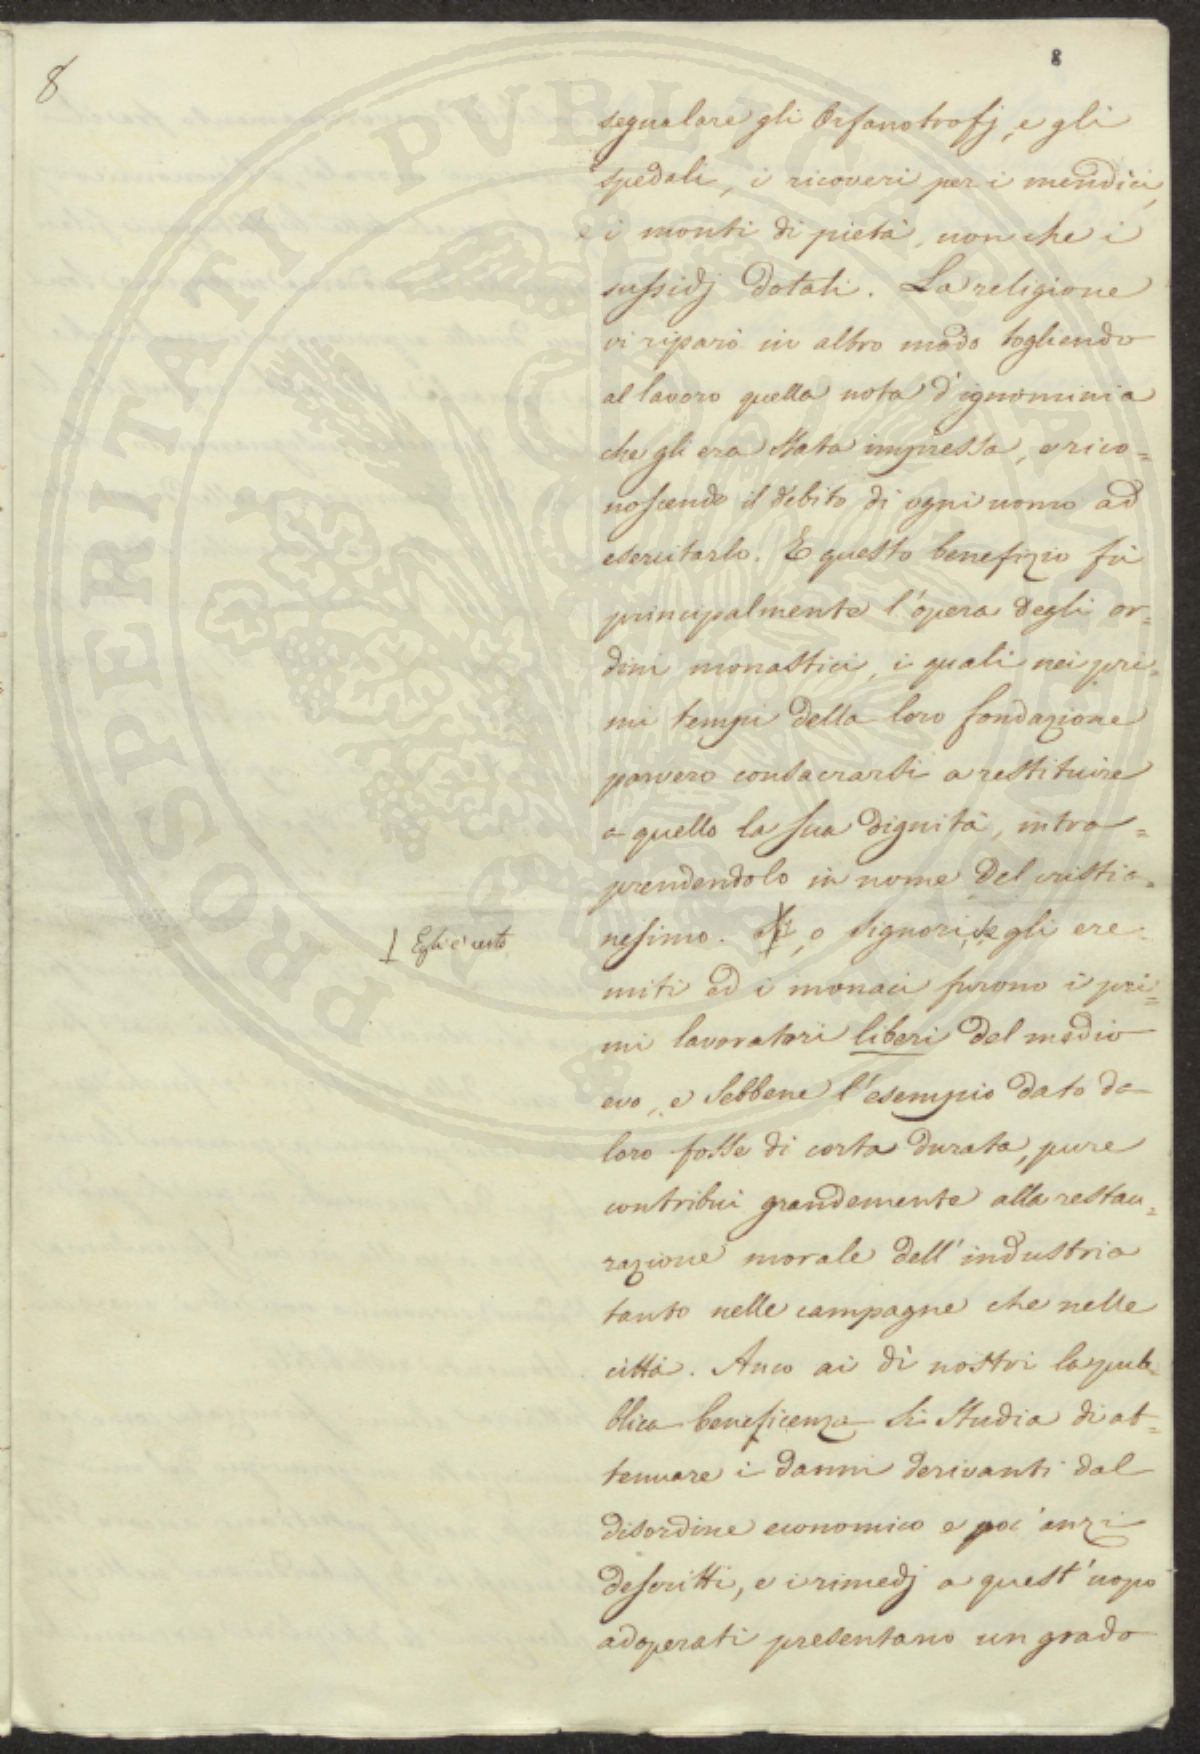 8
8
segnalare gli Orfanotrofj, e gli
spedali, i ricoveri per i mendici,
e i monti di pietà, non che i
sussidj dotali. La religione
vi riparò in altro modo togliendo
al lavoro quella nota d'ignominia
che gli era stata impressa, e rico=
noscendo il debito di ogni uomo ad
esercitarlo. E questo benefizio fù
principalmente l'opera degli or=
dini monastici, i quali nei pri=
mi tempi della loro fondazione
parvero consacrarsi a restituire
a quello la sua dignità, intra=
prendendolo in nome del cristia=
nesimo. Sì, o Signori, se gli ere=
⊥ Egli è certo
miti ed i monaci furono i pri=
mi lavoratori liberi del medio
evo, e sebbene l'esempio dato da
loro fosse di corta durata, pure
contribuì grandemente alla restau=
razione morale dell'industria
tanto nelle campagne che nelle
città. Anco ai dì nostri la pub=
blica beneficenza si studia di at=
tenuare i danni derivanti dal
disordine economico e poc'anzi
descritti, e i rimedj a quest'uopo
adoperati presentano un grado
PROSPERITATI PVBLICAE